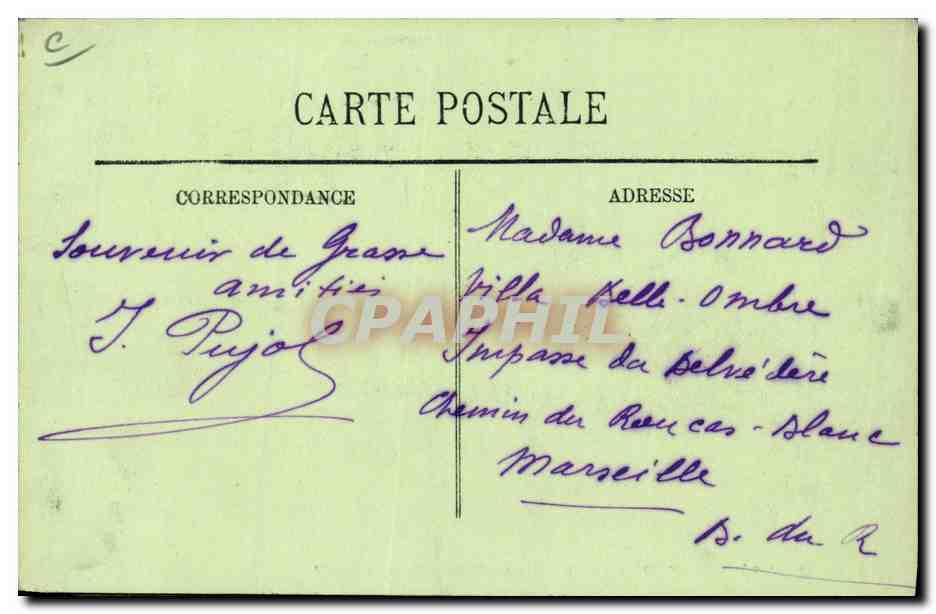 C
CARTE POSTALE
CORRESPONDANCE
Souvenir de Grasse
amitiés
J. Pujol
ADRESSE
Madame Bonnard
Villa Belle-Ombre
Impasse du Belvédère
Chemin du Roucas-Blanc
Marseille
B. du R
CPAPHIL